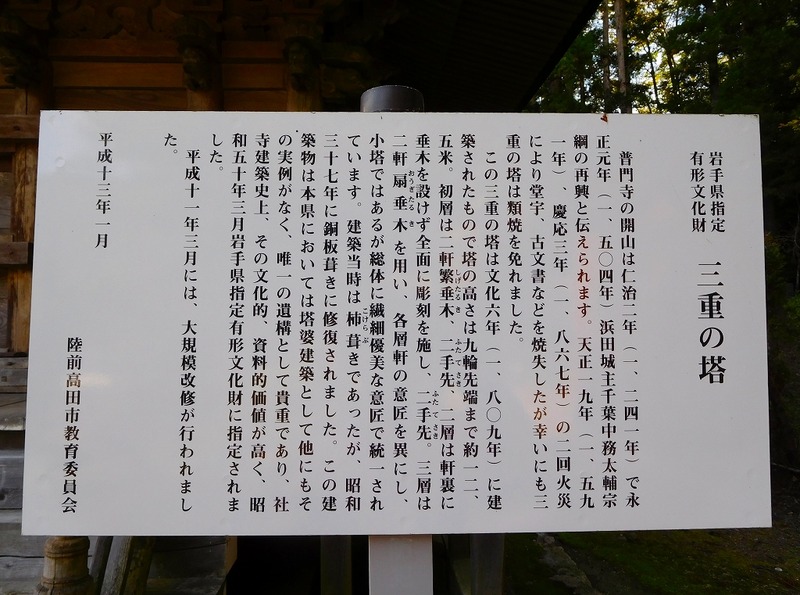 岩手県指定
有形文化財
三重の塔
普門寺の開山は仁治二年（一、二四一年）で永
正元年（一、五〇四年）浜田城主千葉中務太輔宗
綱の再興と伝えられます。天正一九年（一、五九
一年）、慶応三年（一、八六七年）の二回火災
により堂宇、古文書などを焼失したが幸いにも三
重の塔は類焼を免れました。
この三重の塔は文化六年（一、八〇九年）に建
築されたもので塔の高さは九輪先端まで約一二、
五米。初層は二軒繁垂木、二手先、二層は軒裏に
しげたるき ふたてさき
垂木を設けず全面に彫刻を施し、二手先。三層は
ふたてさき
二軒扇垂木を用い、各層軒の意匠を異にし、
おうぎたるき
小塔ではあるが総体に繊細優美な意匠で統一され
ています。建築当時は柿葺きであったが、昭和
こけらぶ
三十七年に銅板葺きに修復されました。この建
築物は本県においては塔婆建築として他にもそ
の実例がなく、唯一の遺構として貴重であり、社
寺建築史上、その文化的、資料的価値が高く、昭
和五十年三月岩手県指定有形文化財に指定されま
した。
平成十一年三月には、大規模改修が行われまし
た。
平成十三年一月
陸前高田市教育委員会